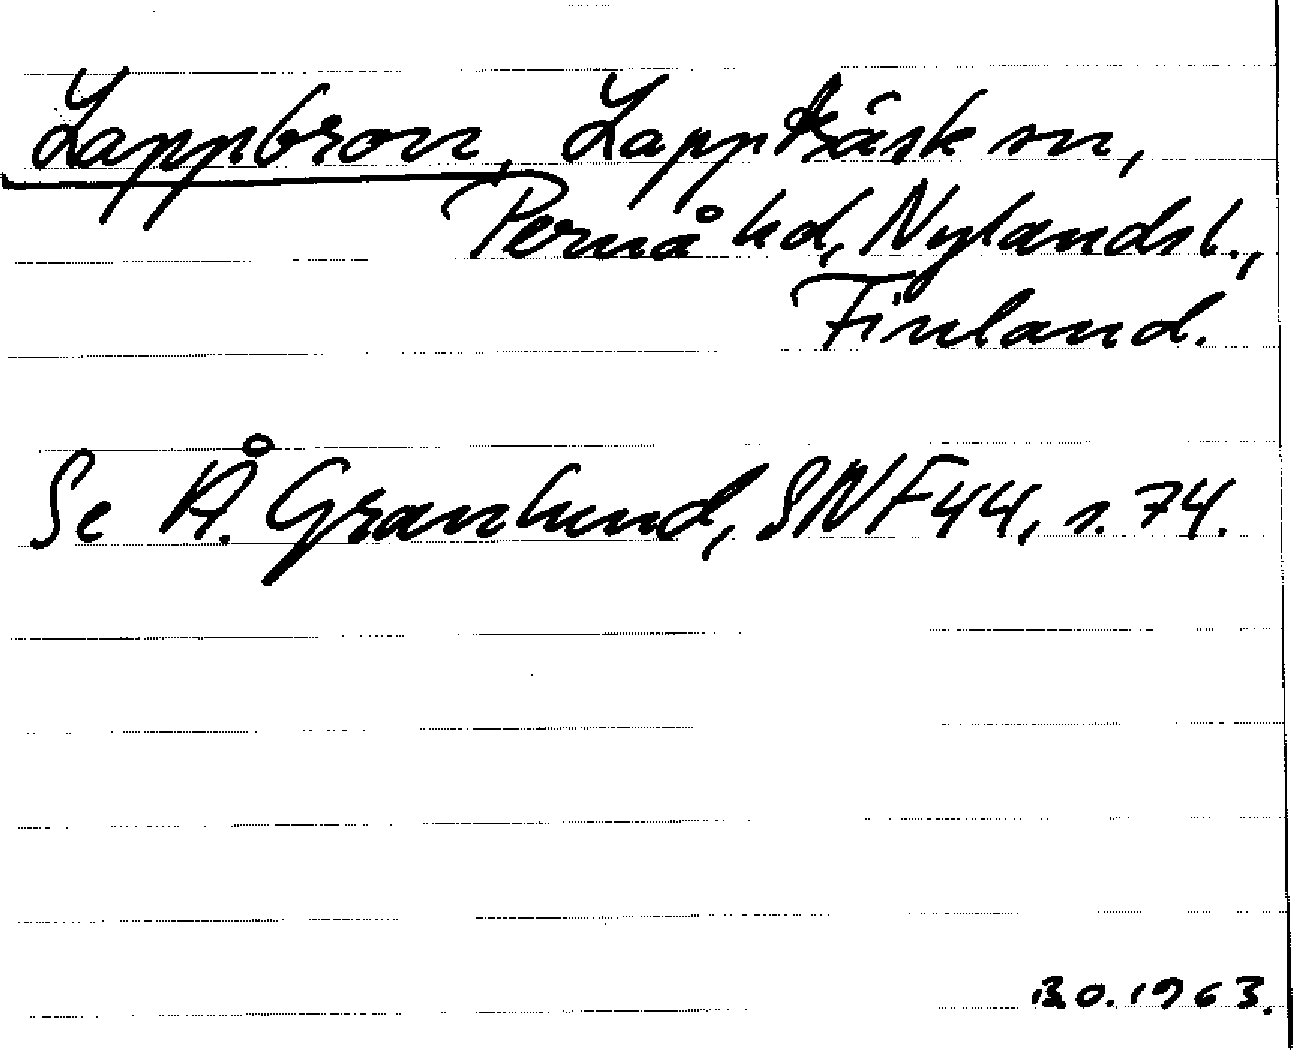 Lappbron, Lappträsk sn,
Pernå hd, Nylandsl.,
Finland.
Se Å. Granlund, SNF 44, s. 74.
B.O. 1963.